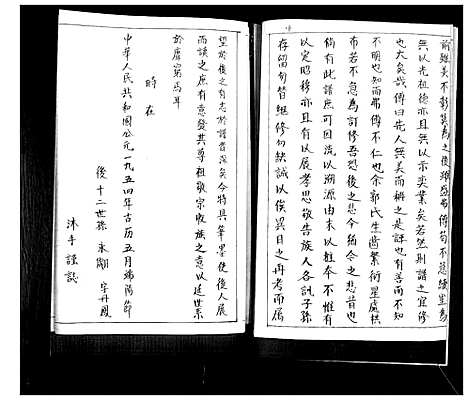 前雖美不彰莫為之後雖盛弗傳苟不急續豈為
無以光祖德亦且無以示奕葉矣若然則譜之宜修
也大矣哉傳曰先人無美而稱之是誣也有善而不
不明也知而弗傳不仁也余郭氏生齒繁衍星處棋
布若不急為訂修吾恐後之悲今猶今之悲昔也
倘有此譜庶可回流以溯源由末以植本不惟有
以定昭移亦且有以展孝思敬告族人各訊子孫
存留勿替繼修勿缺誠以俟異日之再考而屬
望於後之有志於譜者深矣今特具筆墨使後人展
而讀之庶有意發其尊祖敬宗收族之意以延世系
於靡窮焉耳
時在
中華人民共和國公元一九五四年古历五月端陽節
後十二世孫永剛 字丹鳳
沐手謹誌